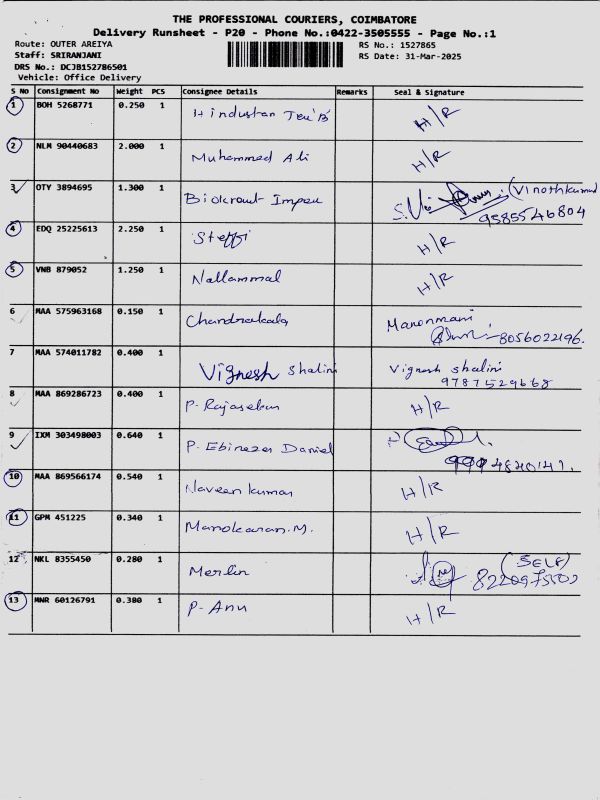 THE PROFESSIONAL COURIERS, COIMBATORE
Delivery Runsheet - P20 - Phone No.:0422-3505555 - Page No.:1
Route: OUTER AREIYA RS No.: 1527865
Staff: SRIRANJANI RS Date: 31-Mar-2025
DRS No.: DCJB152786501
Vehicle: Office Delivery
S No Consignment No Weight PCS Consignee Details Remarks Seal & Signature
1 BOH 5268771 0.250 1 Hindustan H/R
2 NLM 90440683 2.000 1 Muhammed Ali H/R
3 OTY 3894695 1.300 1 (Vinothkumar
9585546804
4 EDQ 25225613 2.250 1 Steffi H/R
5 VNB 879052 1.250 1 Nallammal H/R
6 MAA 575963168 0.150 1 Chandrakala Manonmani
8056022196.
7 MAA 574011782 0.400 1 Vignesh Shalini Vignesh Shalini
9787529668
8 MAA 869286723 0.400 1 P. Rajasekar H/R
9 IXM 303498003 0.640 1 P. Ebinezer Daniel
10 MAA 869566174 0.540 1 Naveen kumar H/R
11 GPM 451225 0.340 1 Manokaran.M. H/R
12 NKL 8355450 0.280 1 Merlin (SELF)
13 MNR 60126791 0.380 1 P. Anu H/R